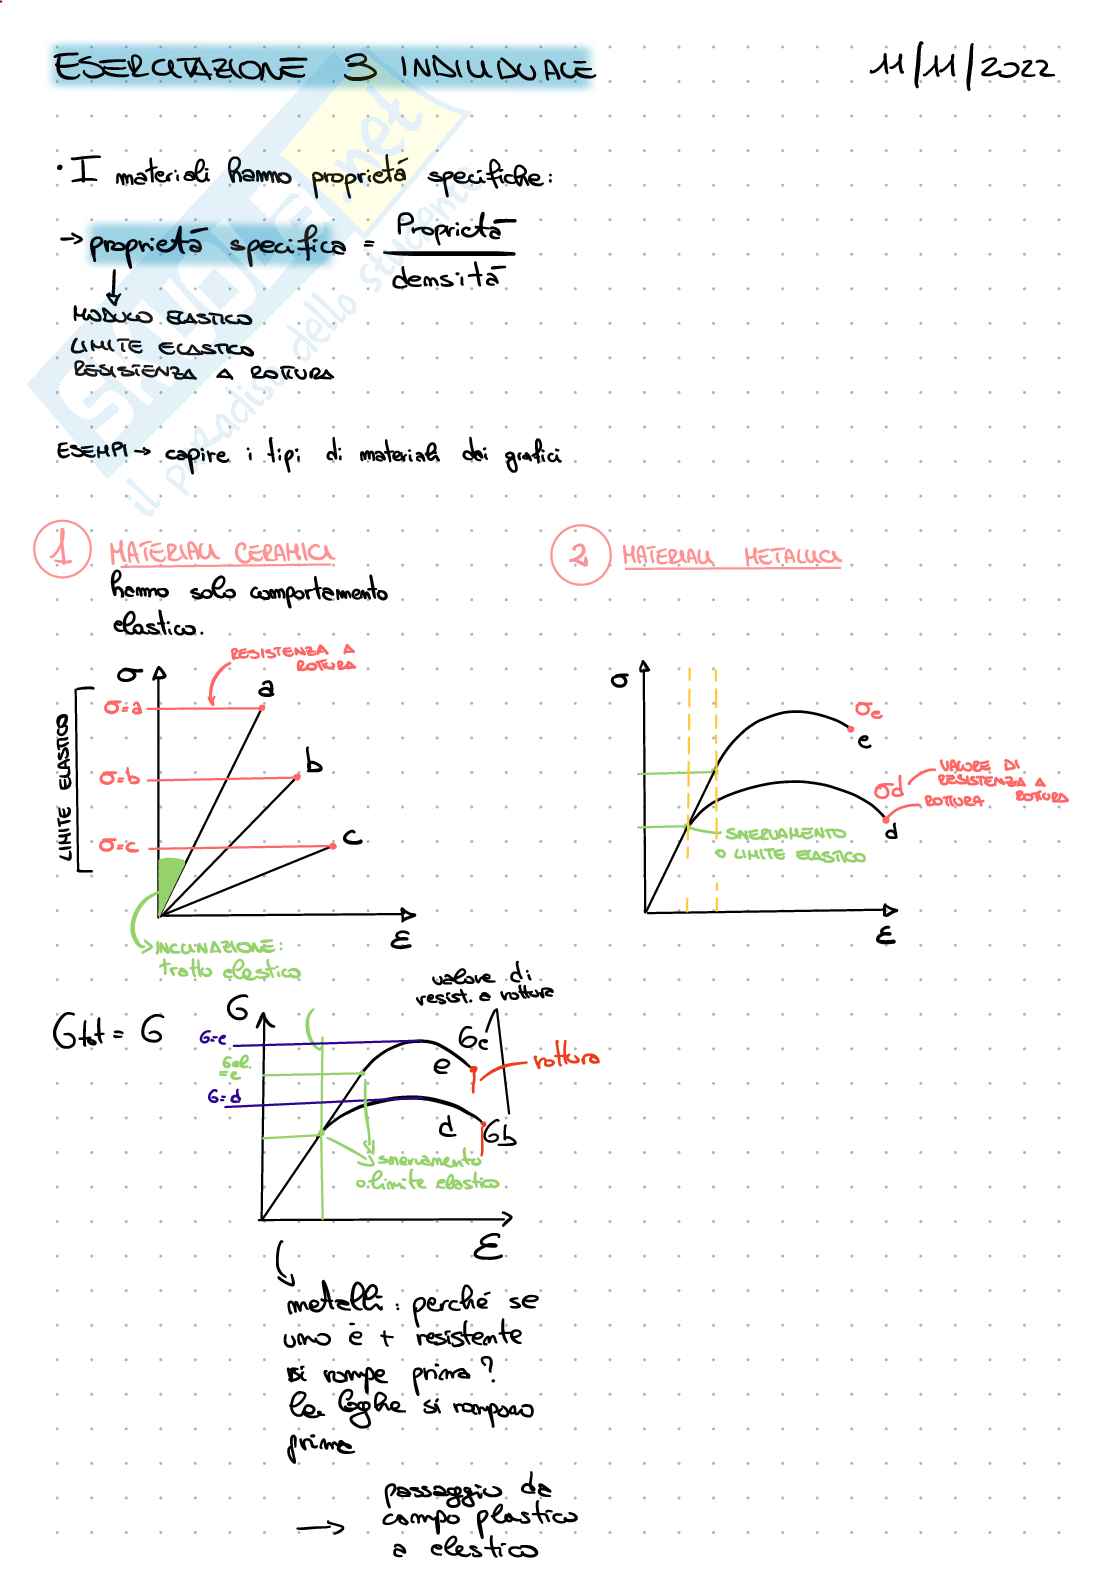 ESERCITAZIONE 3 INDIVIDUALE
11/11/2022
· I materiali hanno proprietá specifiche:
→ proprietá specifica = Proprietá
densitá
MODULO ELASTICO
LIMITE ELASTICO
RESISTENZA A ROTTURA
ESEMPI → capire i tipi di materiali dai grafici
1 MATERIALI CERAMICI
hanno solo comportamento
elastico.
2 MATERIALI METALLICI
RESISTENZA A
ROTTURA
σ
a
σ=a
b
σ=b
c
σ=c
LIMITE ELASTICO
ε
INCLINAZIONE:
tratto elastico
σ
σe
e
σd
VALORE DI
RESISTENZA A
ROTTURA
ROTTURA
d
SNERVAMENTO
O LIMITE ELASTICO
ε
valore di
resist. a rottura
σtot = σ
σ
σ=e
σel.
=e
σ=d
σe
e
rottura
d
σb
snervamento
o limite elastico
ε
metalli: perché se
uno è + resistente
si rompe prima?
le leghe si rompono
prima
→ passaggio da
campo plastico
a elastico
SKUOLA.net
il paradiso dello studente